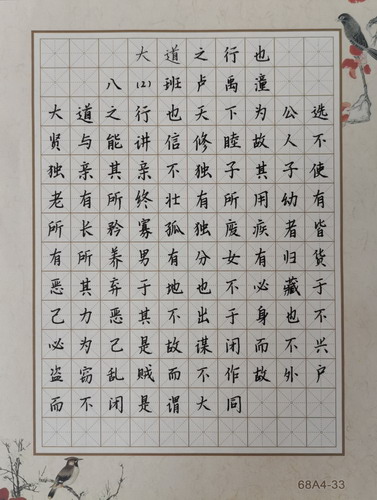 大道之行也
八(2)班卢禹潼
大道之行也天下为公选
贤与能讲信修睦故人不
独亲其亲不独子其子使
老有所终壮有所用幼有
所长矜寡孤独废疾者皆
有所养男有分女有归货
恶其弃于地也不必藏于
己力恶其不出于身也不
必为己是故谋闭而不兴
盗窃乱贼而不作故外户
而不闭是谓大同
68A4-33